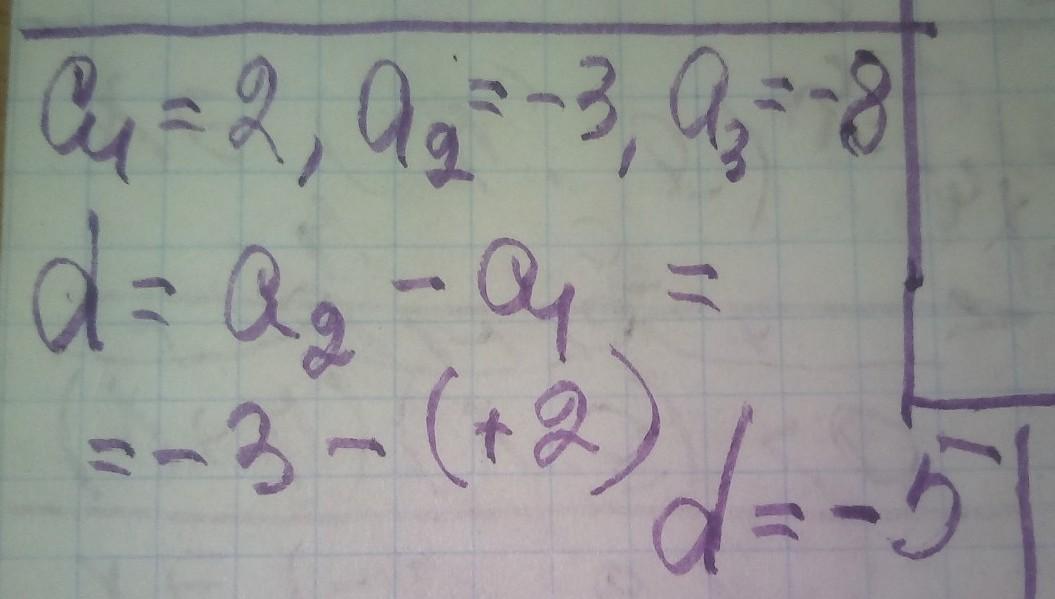 a₁ = 2, a₂ = -3, a₃ = -8
d = a₂ - a₁ =
= -3 - (+2)
d = -5